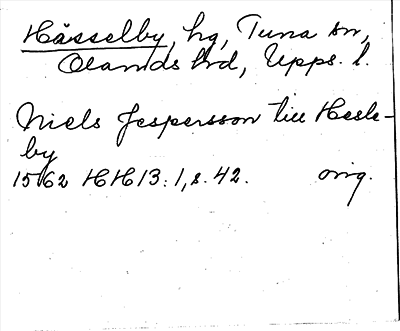 Hässelby, hg, Tuna sn,
Olands hd, Upps. l.
Niels Jespersson till Hesle-
by
1562 HH 13:1, s. 42. orig.